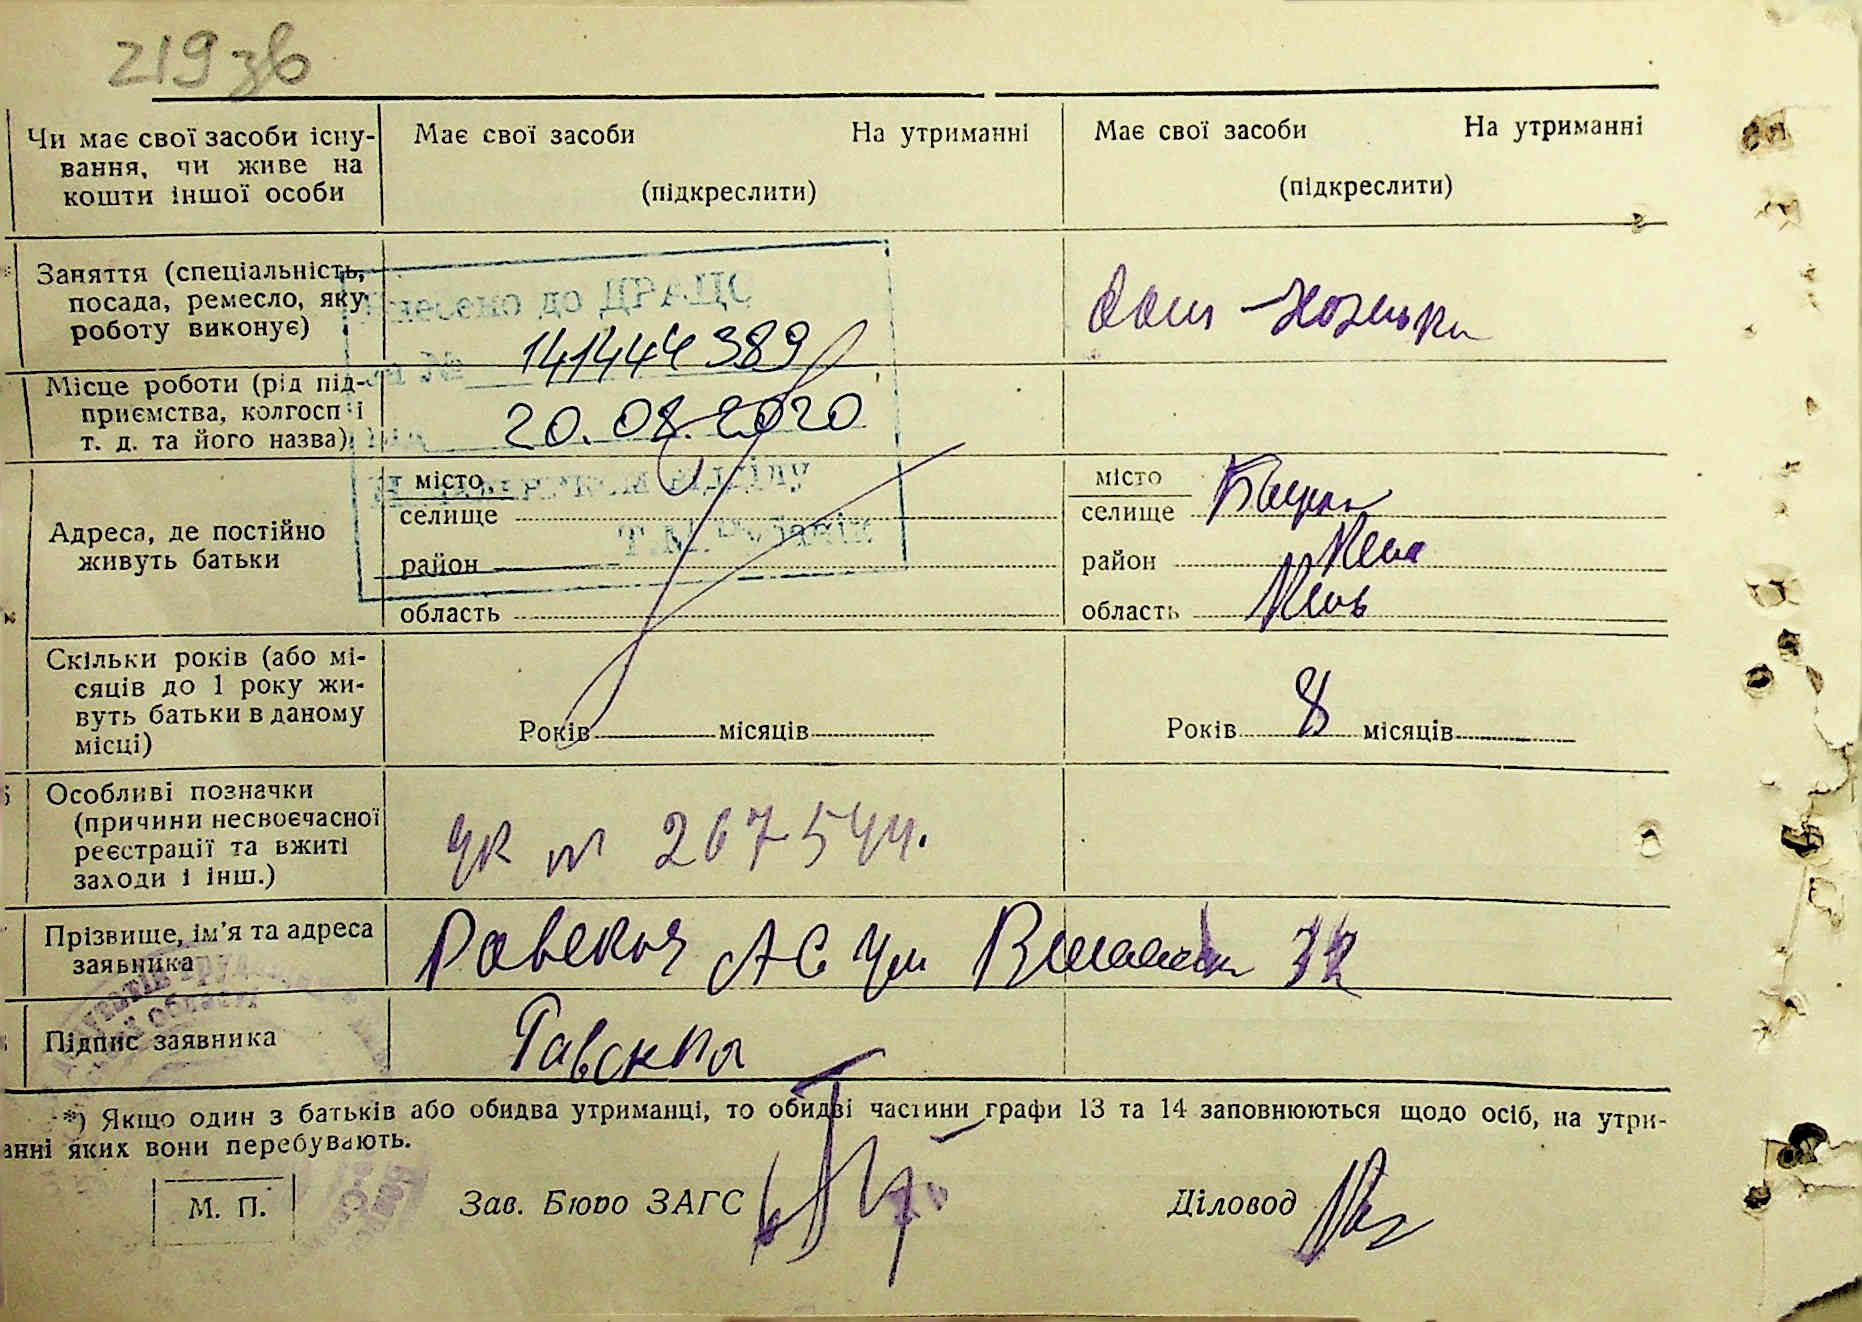 219 зв
Чи має свої засоби існу-
вання, чи живе на
кошти іншої особи
Має свої засоби На утриманні
(підкреслити)
Має свої засоби На утриманні
(підкреслити)
Заняття (спеціальність,
посада, ремесло, яку
роботу виконує)
до ДРАЦС
141444389
Місце роботи (рід під-
приємства, колгосп і
т. д. та його назва)
20.08.2020
відділу
Т.М.
Адреса, де постійно
живуть батьки
місто
селище
район
область
місто
селище
район
область
Скільки років (або мі-
сяців до 1 року жи-
вуть батьки в даному
місці)
Років місяців
Років 8 місяців
Особливі позначки
(причини несвоєчасної
реєстрації та вжиті
заходи і інш.)
Прізвище, ім’я та адреса
заявника
АС ул 32
Підпис заявника
*) Якщо один з батьків або обидва утриманці, то обидві частини графи 13 та 14 заповнюються щодо осіб, на утри-
анні яких вони перебувають.
М. П.
Зав. Бюро ЗАГС
Діловод